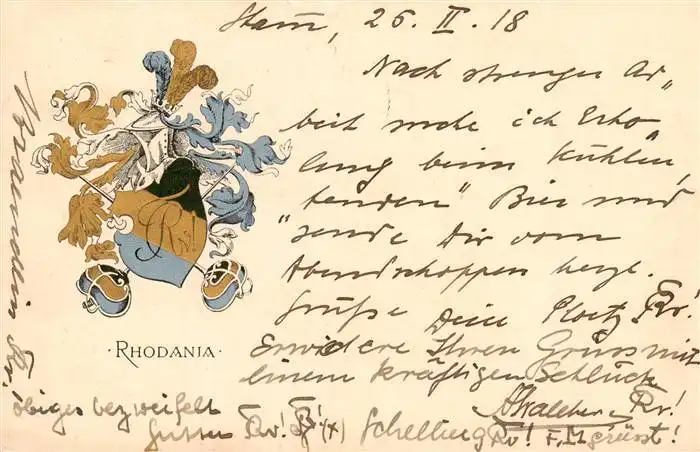 26. II. 18
Nach strenger Ar„
beit suche ich Erho„
lung beim „kühlen,
Bier und
sende Dir vom
Abendschoppen herzl.
Grüße Dein Ploetz Rv!
Erwidere Ihren Gruss mit
einem kräftigen Schluck
Rv!
Rv!
obiges bezweifelt
Rv! Schelling Rv! F.M grüsst!
Rv!
· RHODANIA ·